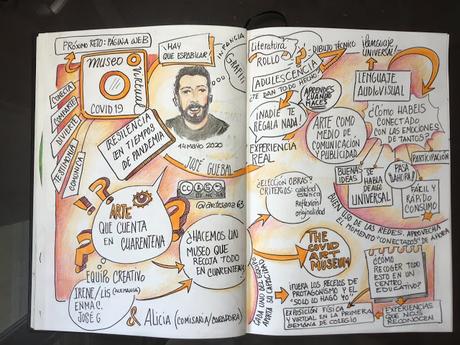 PRÓXIMO RETO: PÁGINA WEB
museo
virtual
COVID19
CONECTA
COMPARTE
DIVIERTE
TESTIMONIA
COMUNICA
RESILENCIA
EN TIEMPOS
DE PANDEMIA
¡HAY
QUE ESPABILAR!
INFANCIA
GRAFITI
14 MAYO 2020
JOSÉ GUEBAL
ARTE
QUE CUENTA
EN CUARENTENA
EQUIPO CREATIVO
IRENE/LIS (ALEMANIA)
ENMA C.
JOSÉ G
& Alicia (COMISARIA/CURADORA)
¿HACEMOS UN
MUSEO QUE
RECOJA TODO
EN CUARENTENA?
Literatura
ROLLO
DIBUJO TÉCNICO
¡LENGUAJE
UNIVERSAL!
ADOLESCENCIA
¡TE DAN TODO HECHO!
APRENDES
CUANDO
HACES
LENGUAJE
AUDIOVISUAL
¡NADIE TE
REGALA NADA!
EXPERIENCIA
REAL
ARTE COMO
MEDIO DE
COMUNICACIÓN
PUBLICIDAD
¿CÓMO HABÉIS
CONECTADO
CON LAS EMOCIONES
DE TANTOS?
PARTICIPACIÓN
BUENAS
IDEAS
SE HABÍA
DE ALGO
UNIVERSAL
PASA
AHORA!
FÁCIL Y
RÁPIDO
CONSUMO
SELECCIÓN OBRAS
CRITERIOS:
calidad
estética
Reflexión
originalidad
BUEN USO DE LAS REDES. APROVECHA
EL MOMENTO "CONECTADOS" DE AHORA
THE
COVID
ART
MUSEUM
CADA UNO DEL EQUIPO
APORTA SU CAPACIDAD
¡FUERA LOS RECELOS DE
PROTAGONISMO Y EL
"SOLO LO HAGO YO"!
EXPOSICIÓN FÍSICA Y
VIRTUAL EN LA PRIMERA
SEMANA DE COLEGIO
¿CÓMO
RECOGER TODO
ESTO EN UN
CENTRO
EDUCATIVO?
EXPERIENCIAS
QUE NOS
RECONOCEN